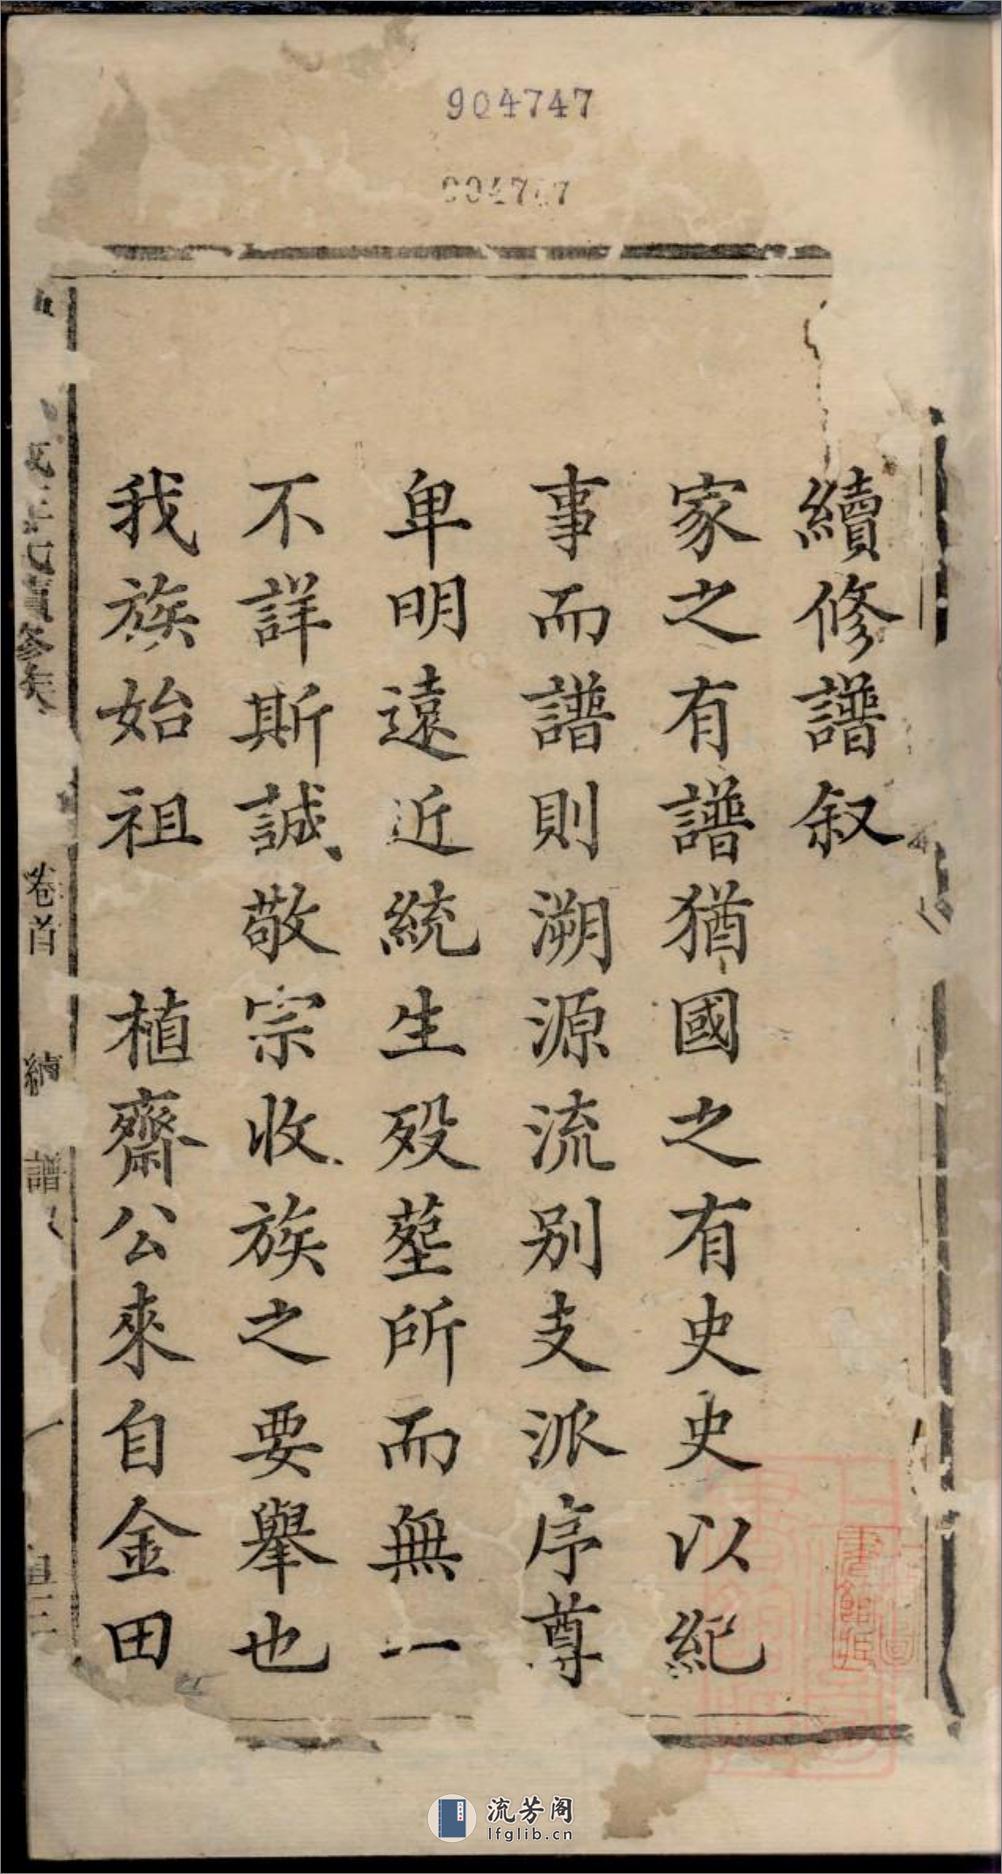 904747
續修譜叙
家之有譜猶國之有史史以紀
事而譜則溯源流别支派序尊
卑明遠近統生殁塟所而無一
不詳斯誠敬宗收族之要舉也
我族始祖 植齋公來自金田
卷首
續
譜
一
流芳阁
lfglib.cn